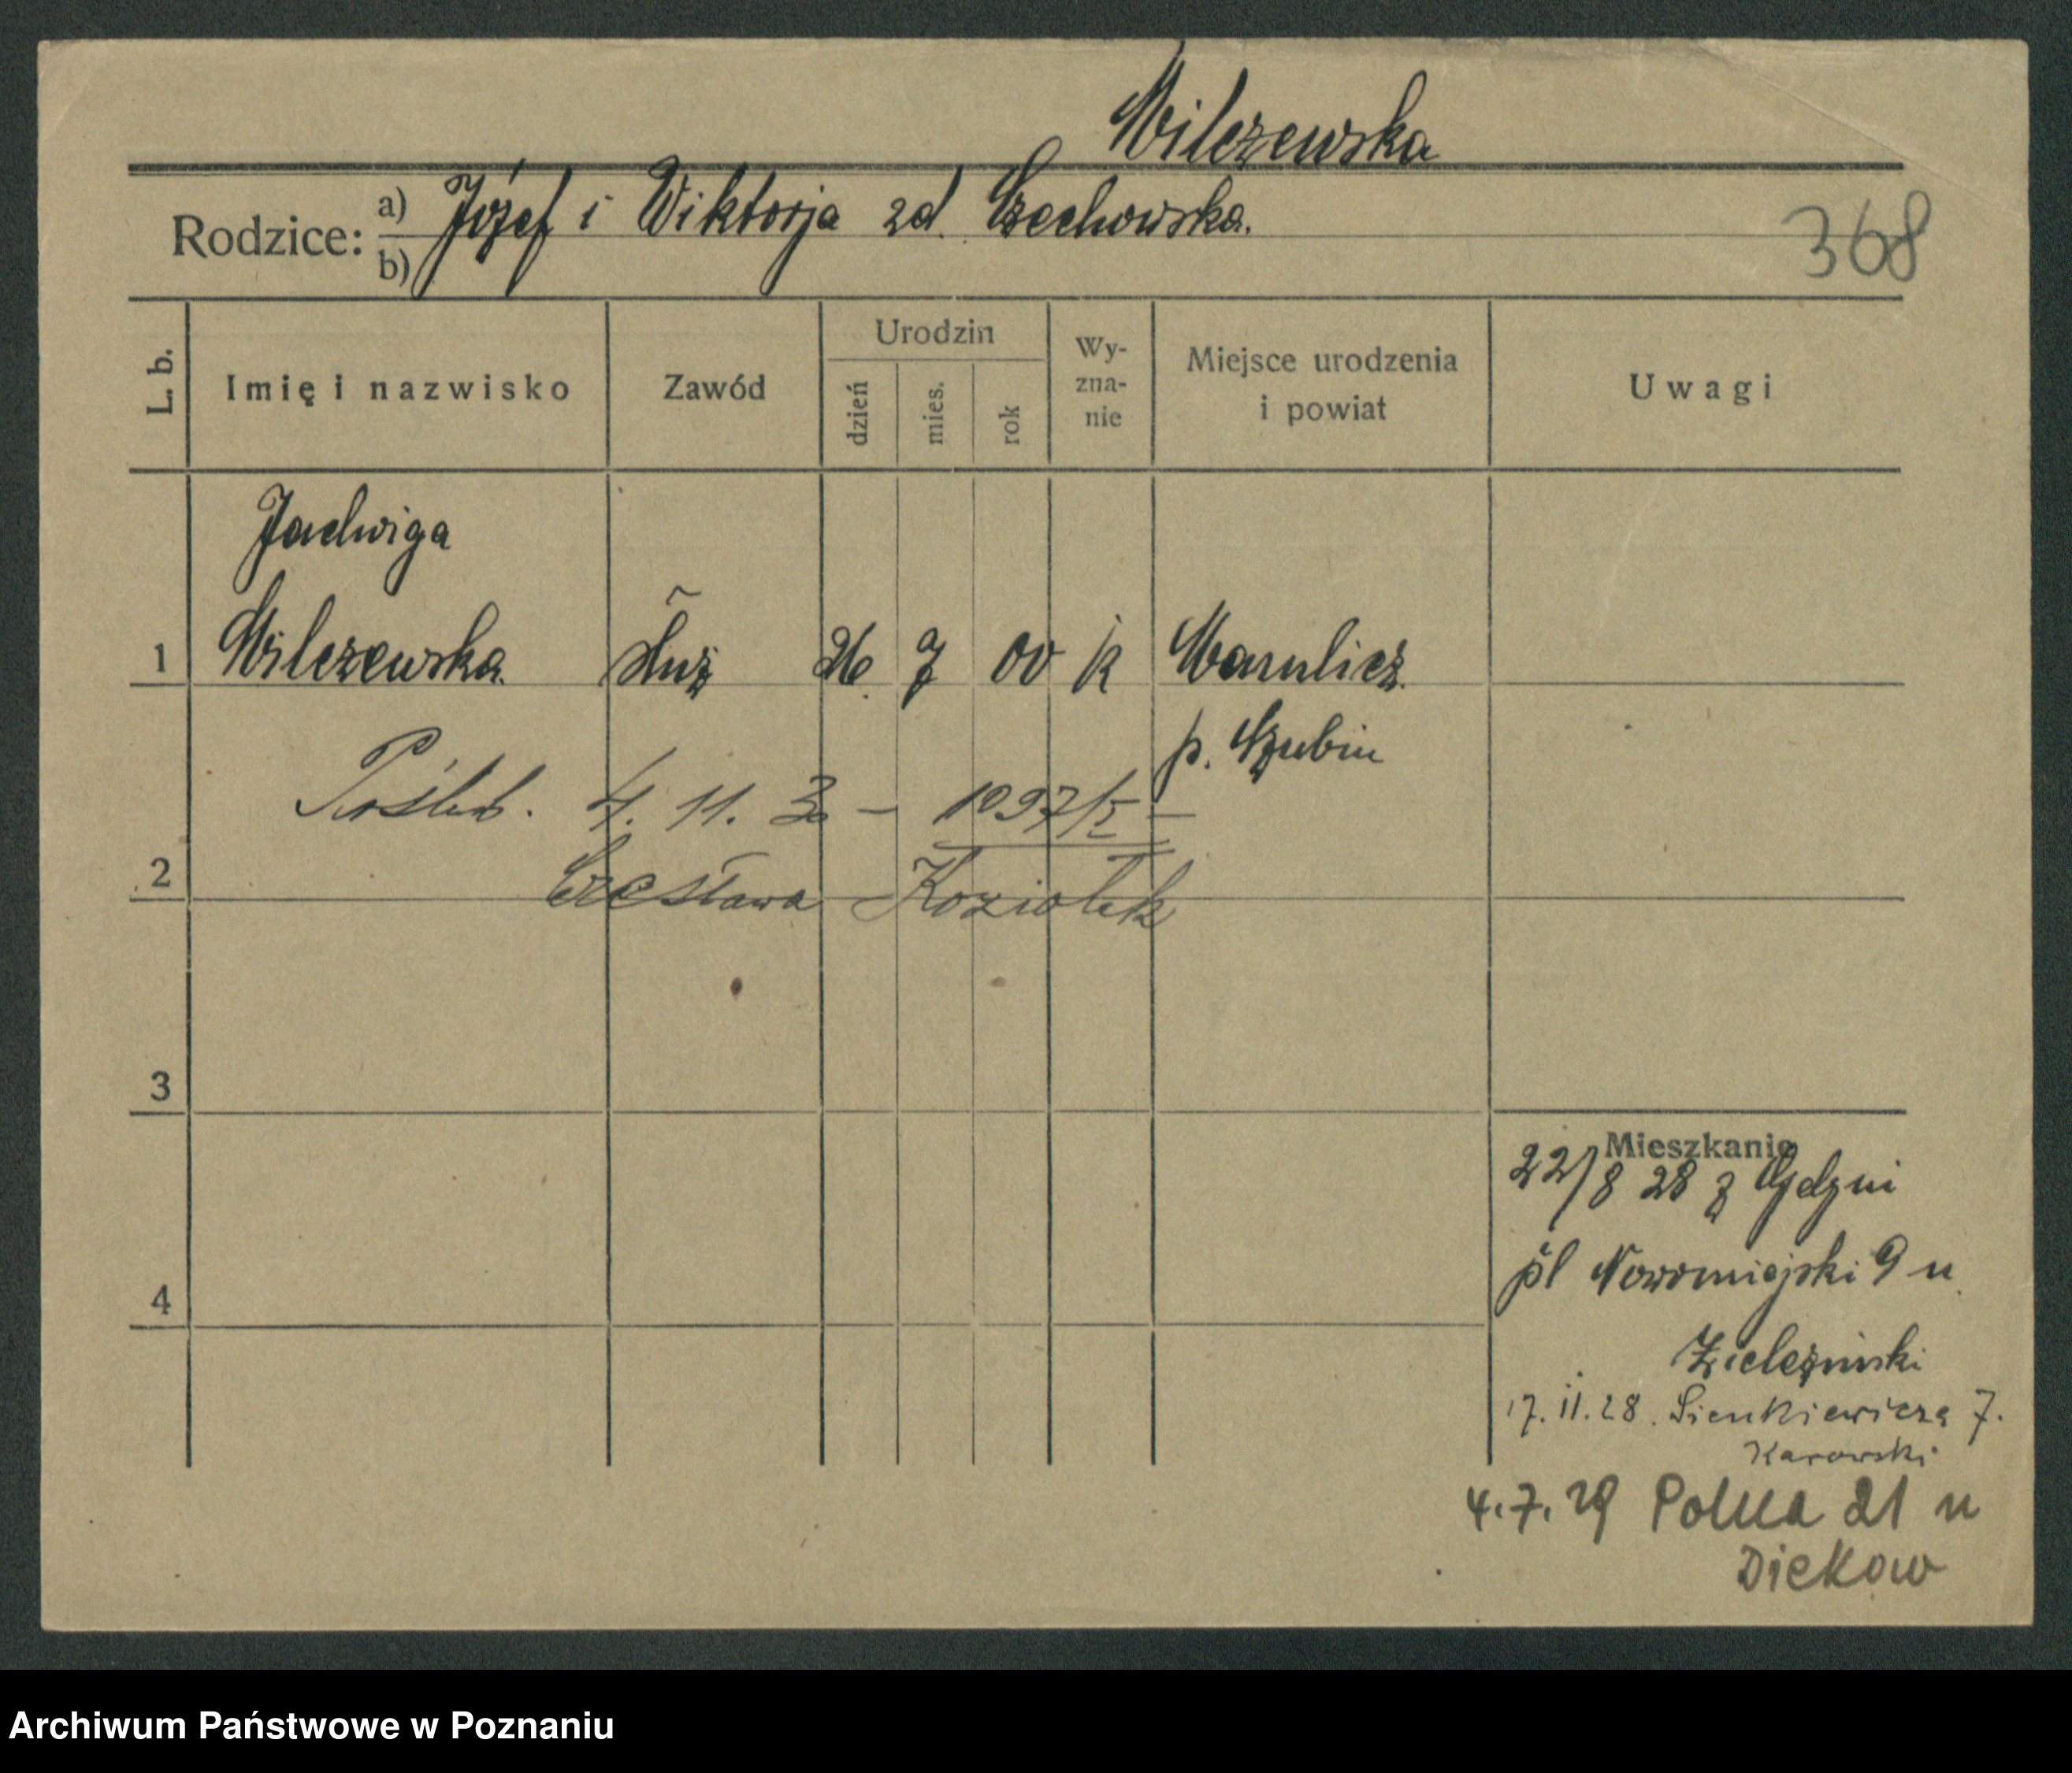 Wilczewska
Rodzice: a) Józef i Wiktorja zd. Czechowska.
b)
368
L. b.
Imię i nazwisko
Zawód
Urodzin
dzień
mies.
rok
Wy-
zna-
nie
Miejsce urodzenia
i powiat
Uwagi
Jadwiga
1 Wilczewska służ 26. 7 00 k
p. Szubin
Poślub. 4. 11. 30 – 1097/I –
2 Czesława Koziołek
3
4
Mieszkanie
22/8 28 z Gdyni
pl Nowomiejski 9 u
17. 11. 28. Sienkiewicza 7.
Karowski
4. 7. 29 Polna 21 u
Diekow
Archiwum Państwowe w Poznaniu